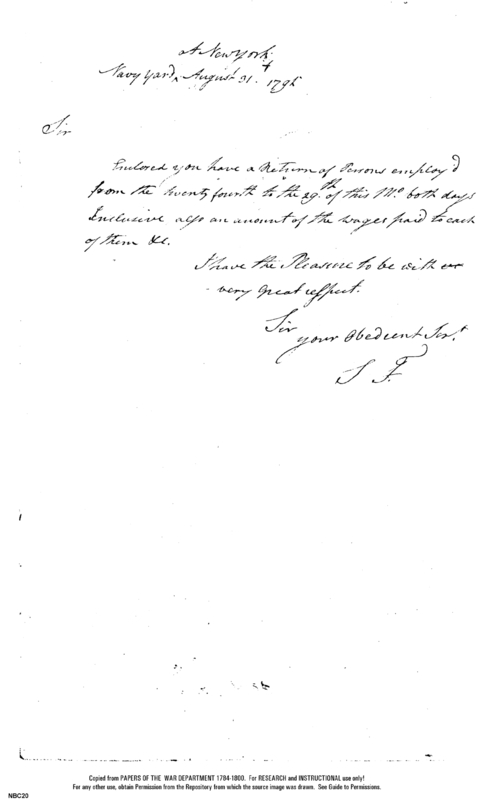 at New york
Navy Yard ^ August 31st 1795
Sir
Enclosed you have a Return of Persons employ'd
from the twenty fourth to the 29th of this Mo. both days
Inclusive also an amount of the wages paid to each
of them &c.
I have the Pleasure to be with
very great respect.
Sir
your Obedient Sert.
J F.
Copied from PAPERS OF THE WAR DEPARTMENT 1784-1800. For RESEARCH and INSTRUCTIONAL use only!
For any other use, obtain Permission from the Repository from which the source image was drawn. See Guide to Permissions.
NBC20